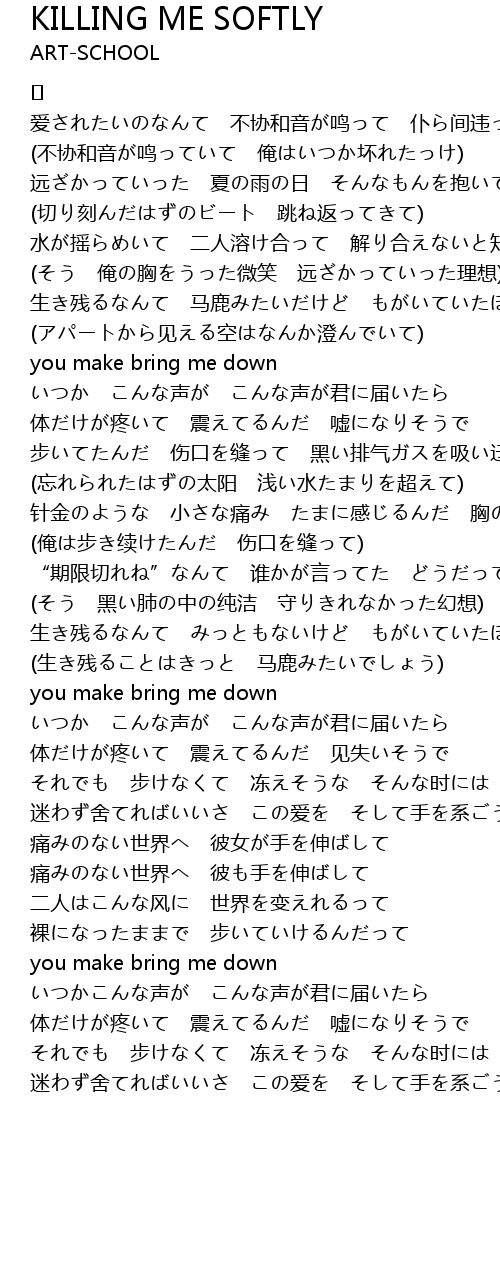 KILLING ME SOFTLY
ART-SCHOOL
爱されたいのなんて　不协和音が鸣って　仆ら间违っ
(不协和音が鸣っていて　俺はいつか坏れたっけ)
远ざかっていった　夏の雨の日　そんなもんを抱いて
(切り刻んだはずのビート　跳ね返ってきて)
水が揺らめいて　二人溶け合って　解り合えないと知
(そう　俺の胸をうった微笑　远ざかっていった理想)
生き残るなんて　马鹿みたいだけど　もがいていたほ
(アパートから见える空はなんか澄んでいて)
you make bring me down
いつか　こんな声が　こんな声が君に届いたら
体だけが疼いて　震えてるんだ　嘘になりそうで
歩いてたんだ　伤口を缝って　黑い排气ガスを吸い
(忘れられたはずの太阳　浅い水たまりを超えて)
针金のような　小さな痛み　たまに感じるんだ　胸の
(俺は歩き续けたんだ　伤口を缝って)
“期限切れね”なんて　谁かが言ってた　どうだって
(そう　黑い肺の中の纯洁　守りきれなかった幻想)
生き残るなんて　みっともないけど　もがいていたほ
(生き残ることはきっと　马鹿みたいでしょう)
you make bring me down
いつか　こんな声が　こんな声が君に届いたら
体だけが疼いて　震えてるんだ　见失いそうで
それでも　歩けなくて　冻えそうな　そんな时には
迷わず舍てればいいさ　この爱を　そして手を系ごう
痛みのない世界へ　彼女が手を伸ばして
痛みのない世界へ　彼も手を伸ばして
二人はこんな风に　世界を变えれるって
裸になったままで　歩いていけるんだって
you make bring me down
いつかこんな声が　こんな声が君に届いたら
体だけが疼いて　震えてるんだ　嘘になりそうで
それでも　歩けなくて　冻えそうな　そんな时には
迷わず舍てればいいさ　この爱を　そして手を系ごう